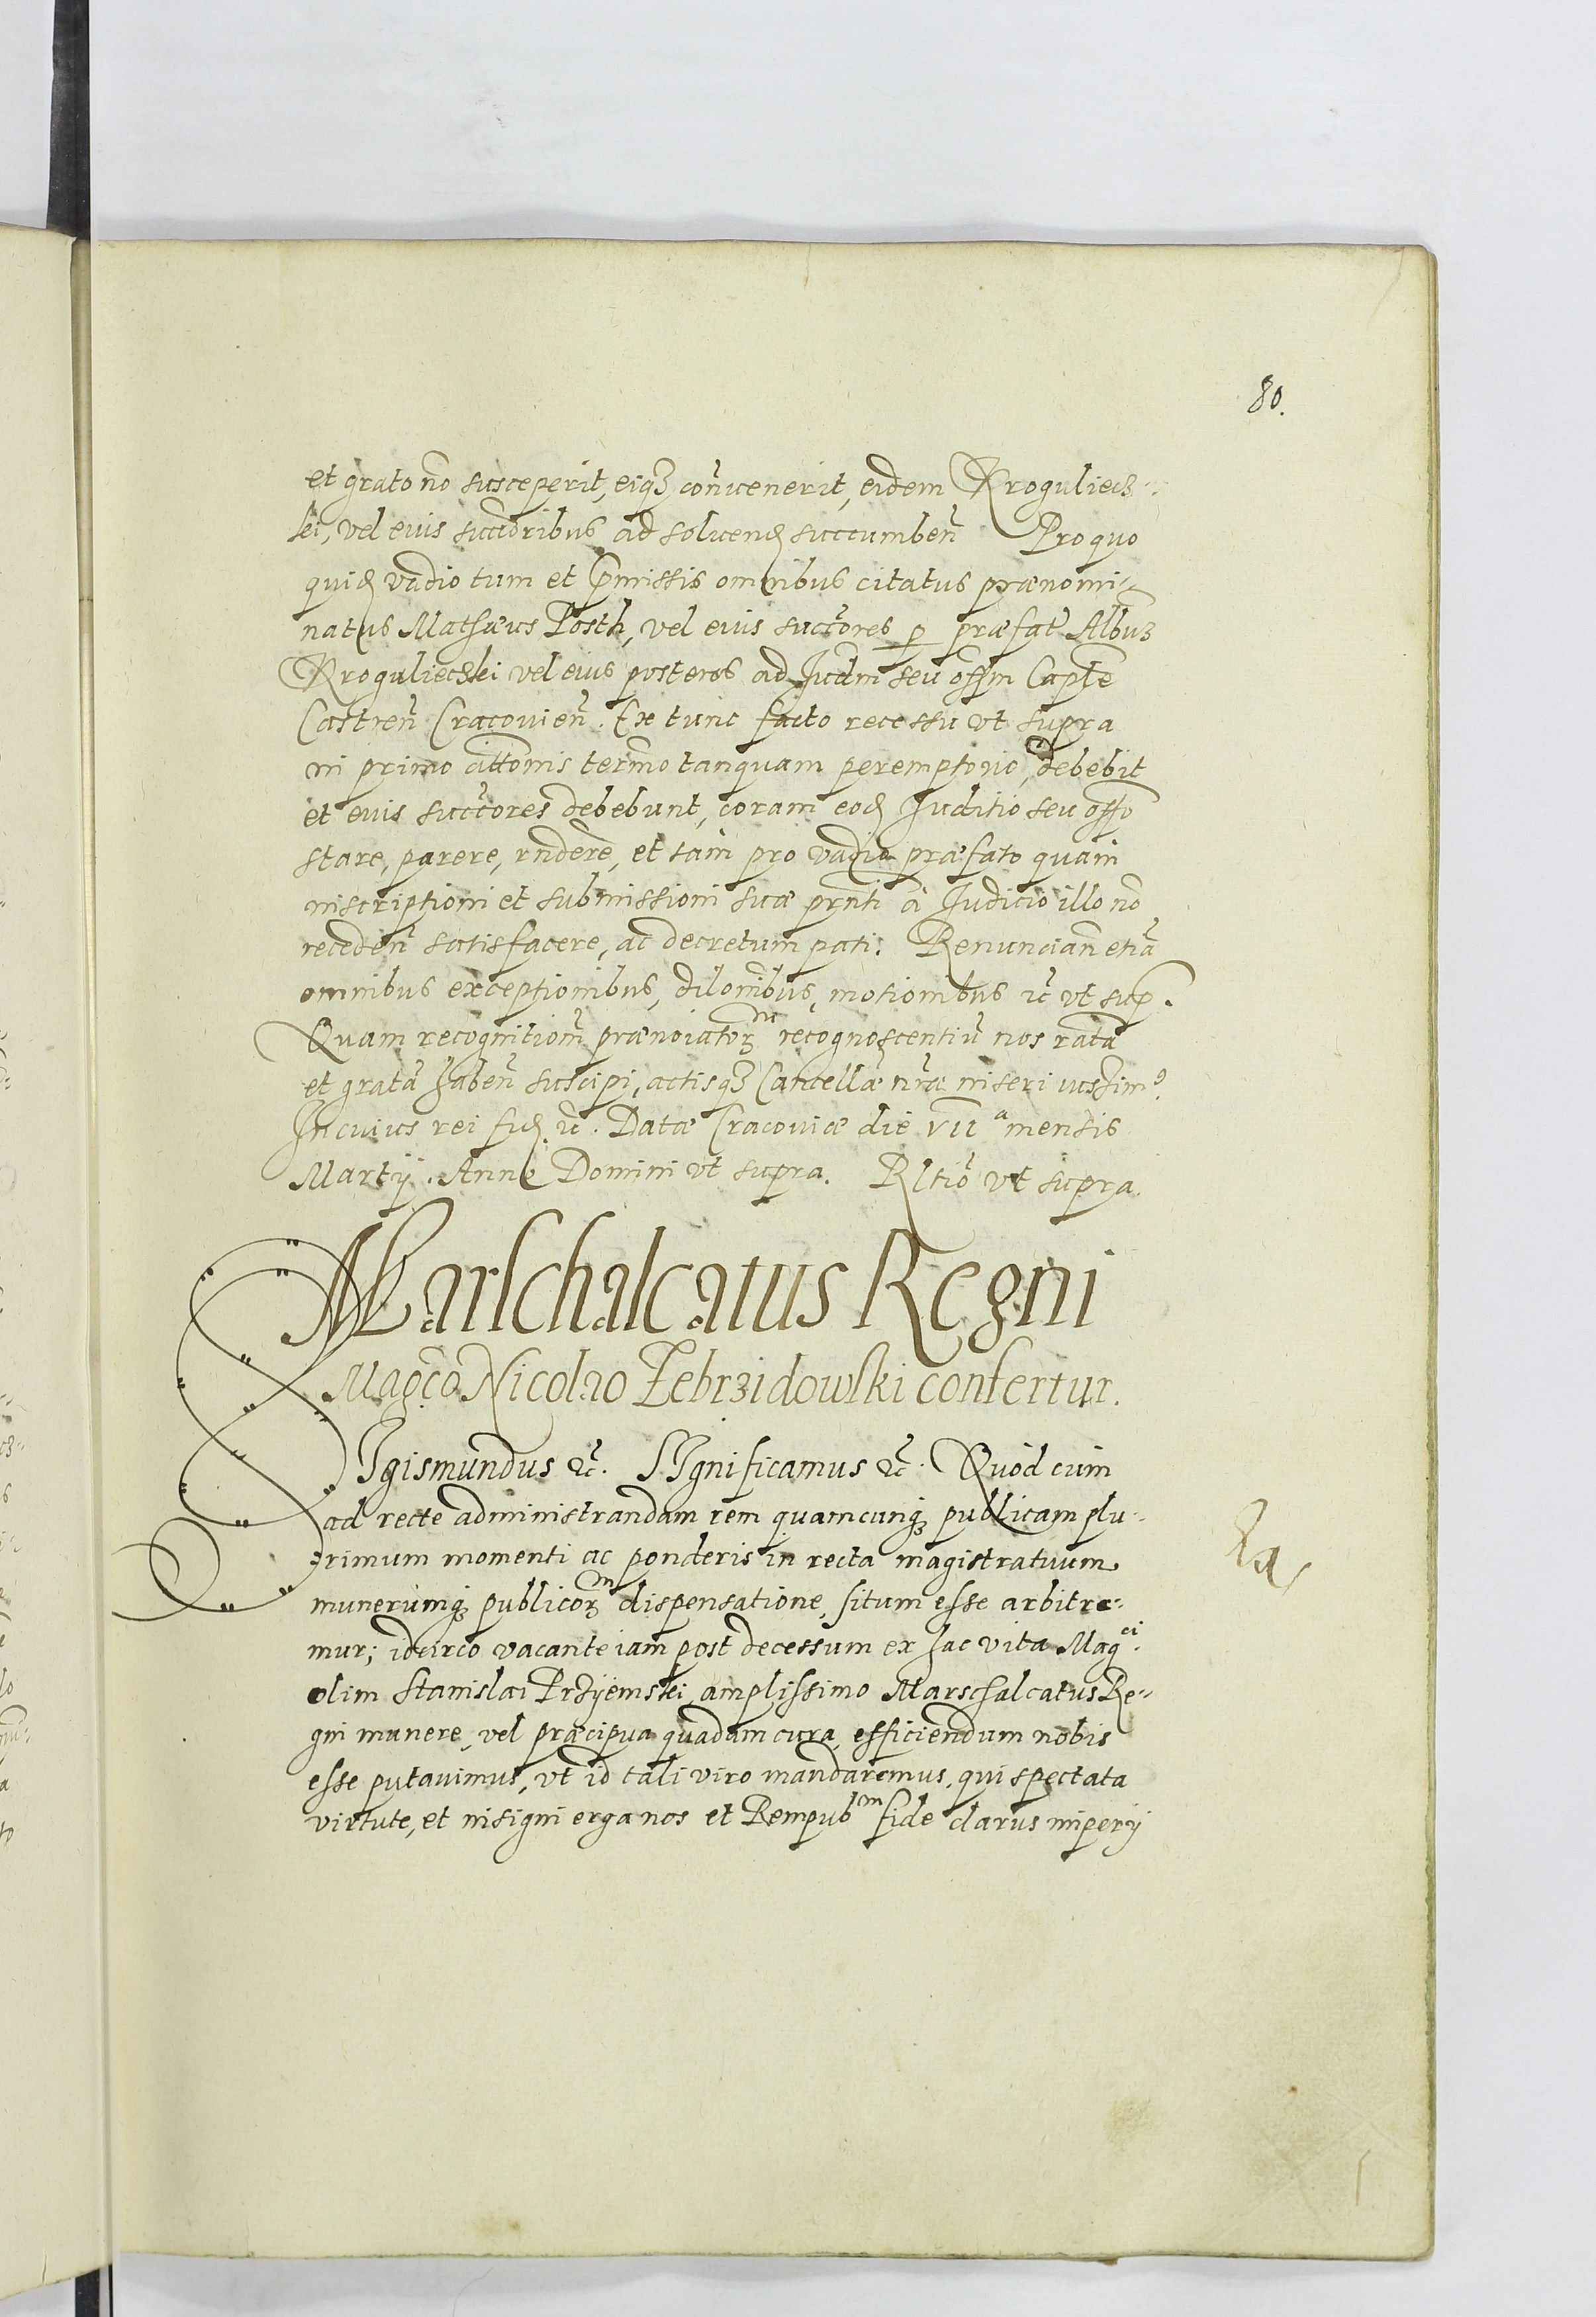 80.
et grato nō susceperit, eiqȝ cōnvenerit, eidem Kroguliecz-
ki, vel eius succōribus ad solvend succumbeñ Pro quo
quid vadio tum et p̄missis omnibus citatus prænomi-
natus Mathæus Posth, vel eius succōres p præfat Albūȝ
Krogulieczki vel eius posteros ad Judm̄ seu offm̄ Capte
Castreñ Cracovieñ. Ex tunc facto recessu vt supra
in primo cittōnis termō tanquam peremptorio, debebit
et eius succōres debebunt, coram eod Juditio seu offo
stare, parere, rn̄dere, et tam pro vadio præfato quam
inscriptioni et submissioni suæ prn̄ti à Judicio illo nō
recedeñ satisfacere, ac decretum pati. Renuncian etiā
omnibus exceptionibus, dilonibus, motionibus &c̄ vt sup.
Quam recognitionē prænoiatorȝ recognoscentiū nos ratā
et gratā habeñ suscipi, actisqȝ Cancellæ nr̄æ inseri iussim⁹.
In cuius rei fid &c̄. Datæ Cracoviæ die VII ᵃ mensis
Martij. Anno Domini vt supra. Rltiō vt supra.
Marschalcatus Regni
Magc̄o Nicolao Zebrzidowski confertur.
SIgismundus &c̄. SIgnificamus &c̄. Quòd cum
ad recte administrandam rem quamcunqȝ publicam plu-
rimum momenti ac ponderis in recta magistratuum
munerumqȝ publicorȝ dispensatione, situm esse arbitre-
mur; idcirco vacante iam post decessum ex hac vita Mag ᶜⁱ.
olim Stanislai Przÿemski amplissimo Marschalcatus Re-
gni munere, vel præcipua quadam cura, efficiendum nobis
esse putavimus, vt id tali viro mandaremus, qui spectata
virtute, et insigni erga nos et Rempub ᵐ fide clarus imperij